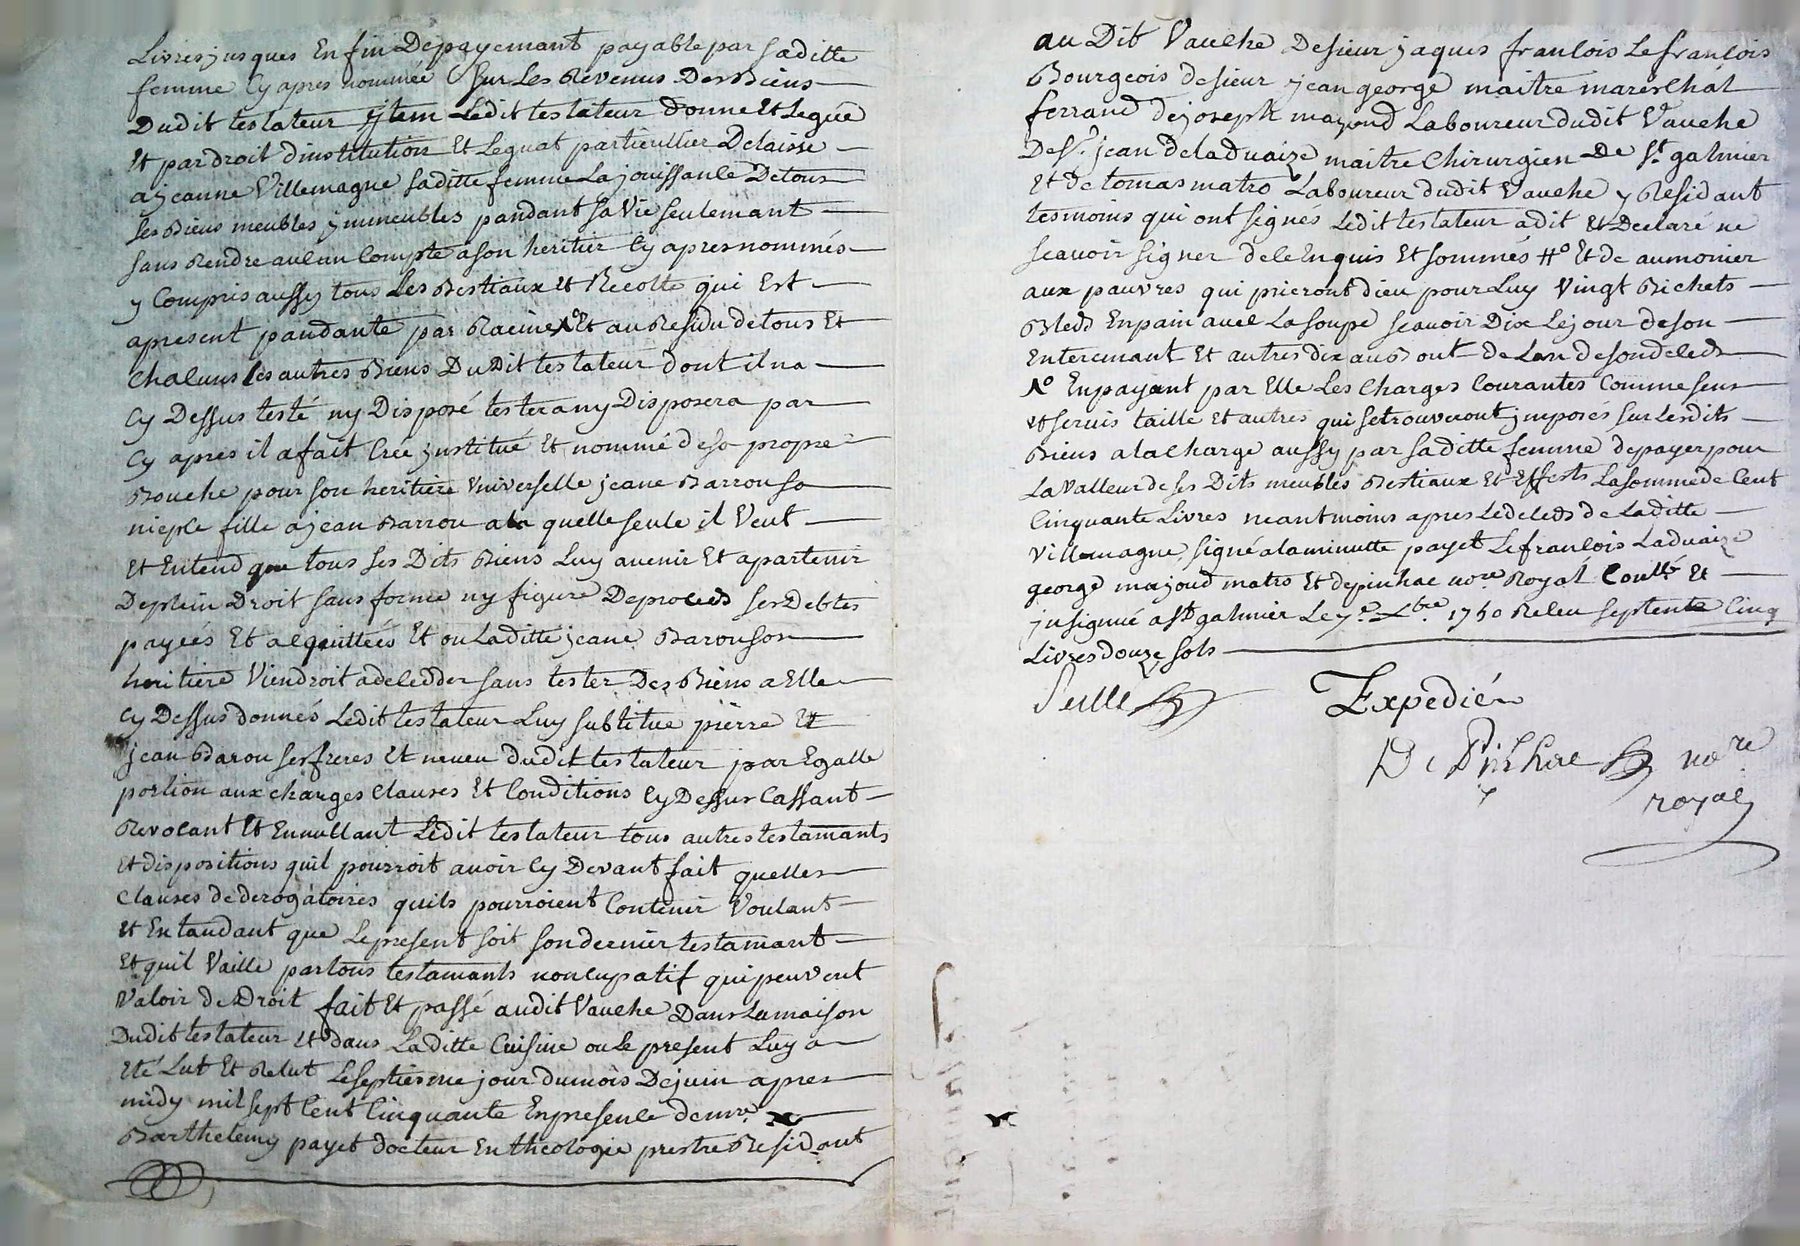 Livres jusques En fin Depayemant payable par saditte
femme Cy apres nommée Sur Les Revenus Des Biens
Dudit testateur jtem Ledit testateur Donne Et Legue
Et par droit dinstitution Et Leguat particullier Delaisse
a jeanne Villemagne saditte femme La jouissance De tous
ses Biens meubles ymmeubles pandant sa Vie seulemant
sans Rendre aucun Compte a son heritier Cy apres nommés
y Compris aussy tous Les Bestiaux Et Recolte qui Est
apresent pandante par Racine Et au Residu de tous Et
Chacuns les autres Biens DuDit testateur dont il na
Cy Dessus testé ny Disposé testera ny Disposera par
Cy apres il a fait Créé jnstitué Et nommé de sa propre
Bouche pour son heritiere Vniverselle jeane Barrou sa
niepce fille a jean Barrou a la quelle seule il Veut
Et Entend que tous ses Dits Biens Luy avenir Et apartenir
De plein Droit sans forme ny figure De proceds ses Debtes
payeés Et acquittées Et ou Laditte jeane Barou son
heritiere Viendroit a deledder sans tester Des Biens a Elle
Cy Dessus donnés Ledit testateur Luy subtitue pierre Et
jean Barou ses freres Et neveu dudit testateur par Egalle
portion aux charges Clauses Et Conditions Cy Dessus Cassant
Revocant Et Ennullant Ledit testateur tous autres testamants
Et dispositions quil pourroit avoir Cy Devant fait quelles
Clauses de derogatoires quils pourroient Contenir Voulant
Et Entandant que Le present soit son dernier testamant
Et quil Vaille par tous testamants noncupatif qui peuvent
Valoir de Droit fait Et passé audit Vauche Dans La maison
Dudit testateur Et dans Laditte Cuisine ou Le present Luy a
Eté Lut Et Relut Le septiesme jour du mois De juin apres
midy mil sept Cent Cinquante En presence de mre
Barthelemy payet docteur En theologie prestre Residant
au Dit Vauche De sieur jaques francois Le francois
Bourgeois de sieur jean george maitre mareschal
ferrand de joseph majoud Laboureur dudit Vauche
De Sr. jean de laduaize maitre Chirurgien De St. galmier
Et de tomas matro Laboureur dudit Vauche y Residant
tesmoins qui ont signés Ledit testateur a dit Et Declaré ne
scavoir signer de ce Enquis Et sommés #o Et de aumonier
aux pauvres qui prieront dieu pour Luy Vingt Bichets
Bleds En pain avec La soupe scavoir Dix Le jour de son
Enteremant Et autres dix au Bout de Lan de son deleds
No En payant par Elle Les Charges Courantes Comme sens
et servis taille Et autres qui se trouveront jmposés sur Lesdits
Biens a la charge aussy par saditte femme de payer pour
La Valleur de ses Dits meubles Bestiaux Et Effests La somme de Cent
Cinquante Livres neantmoins apres Le deleds de Laditte
Villemagne, signé a la minutte payet Le francois Laduaize
george majoud matro Et depinhac nore Royal Coullé Et
jnsignué a St galmier Le 7e Xbre 1750 Releu septente Cinq
Livres douze sols
Seille
Expedié
De Pinhac nore
royal